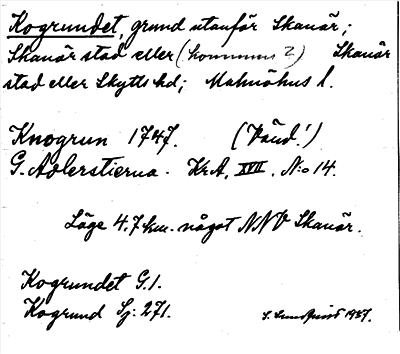 Kogrundet, grund utanför Skanör;
Skanör stad eller (kommun 2) Skanör
stad eller Skytts hd; Malmöhus l.
Knogrun 1747.
G. Adlerstierna. Kr.A. XVII. N:o 14.
Läge 4.7 km. något NNV Skanör.
Kogrundet G.1.
Kogrund Sj: 271.
S. Lundquist 1937.